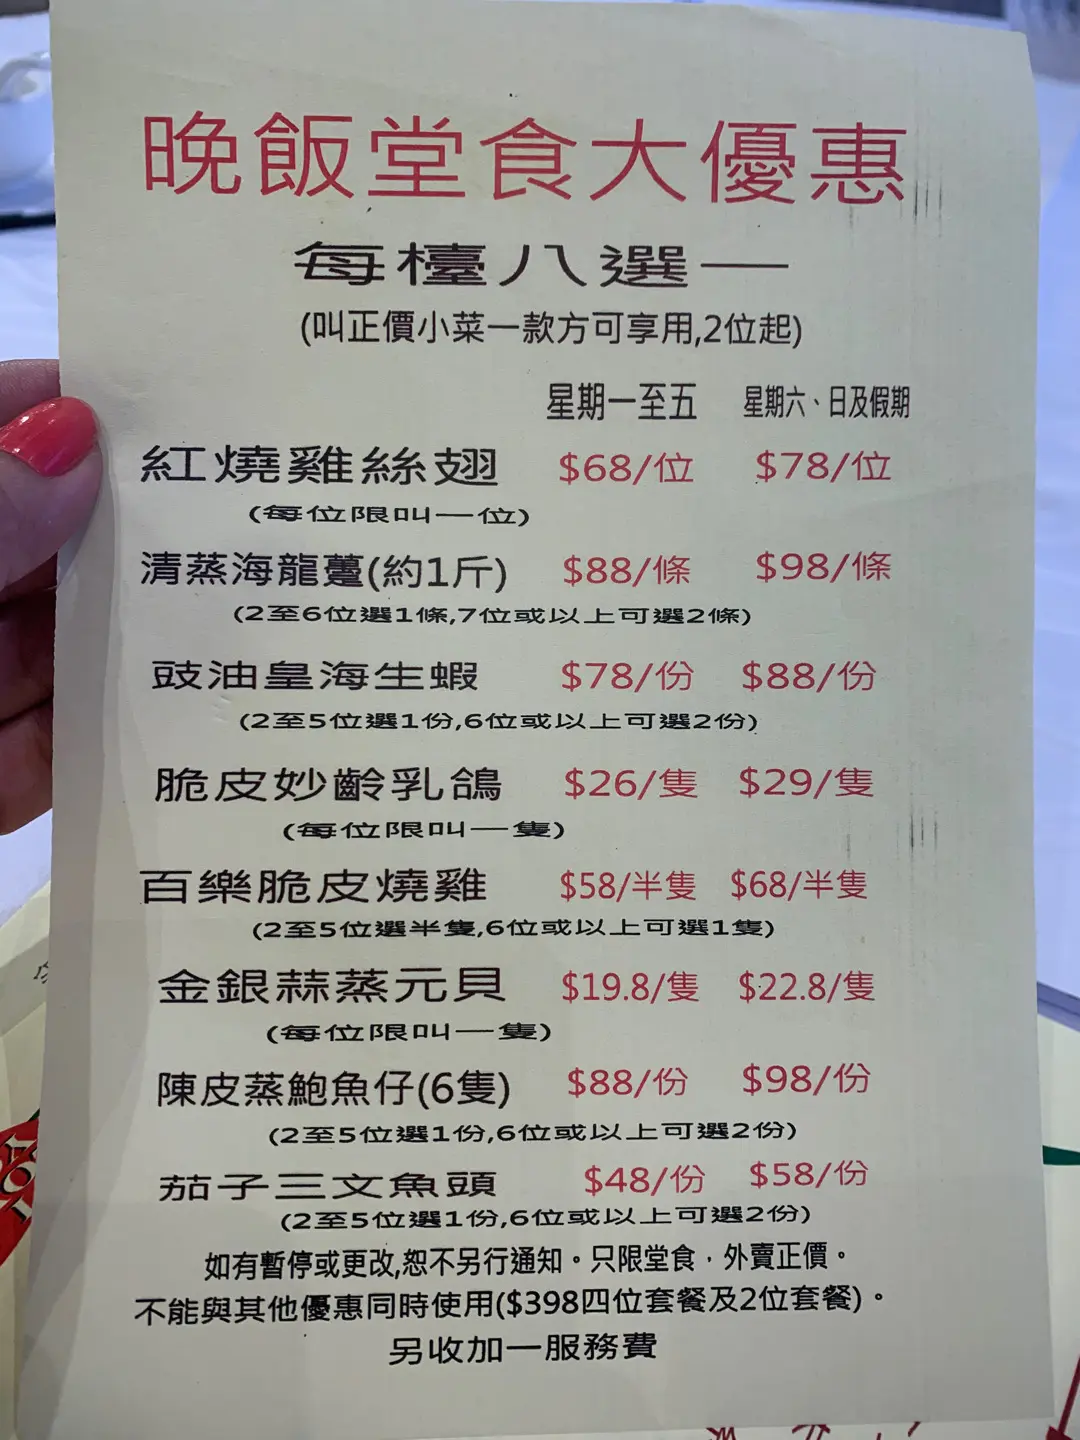 晚飯堂食大優惠
每檯八選一
(叫正價小菜一款方可享用,2位起)
星期一至五 星期六、日及假期
紅燒雞絲翅 $68/位 $78/位
(每位限叫一位)
清蒸海龍躉(約1斤) $88/條 $98/條
(2至6位選1條,7位或以上可選2條)
豉油皇海生蝦 $78/份 $88/份
(2至5位選1份,6位或以上可選2份)
脆皮妙齡乳鴿 $26/隻 $29/隻
(每位限叫一隻)
百樂脆皮燒雞 $58/半隻 $68/半隻
(2至5位選半隻,6位或以上可選1隻)
金銀蒜蒸元貝 $19.8/隻 $22.8/隻
(每位限叫一隻)
陳皮蒸鮑魚仔(6隻) $88/份 $98/份
(2至5位選1份,6位或以上可選2份)
茄子三文魚頭 $48/份 $58/份
(2至5位選1份,6位或以上可選2份)
如有暫停或更改,恕不另行通知。只限堂食，外賣正價。
不能與其他優惠同時使用($398四位套餐及2位套餐)。
另收加一服務費